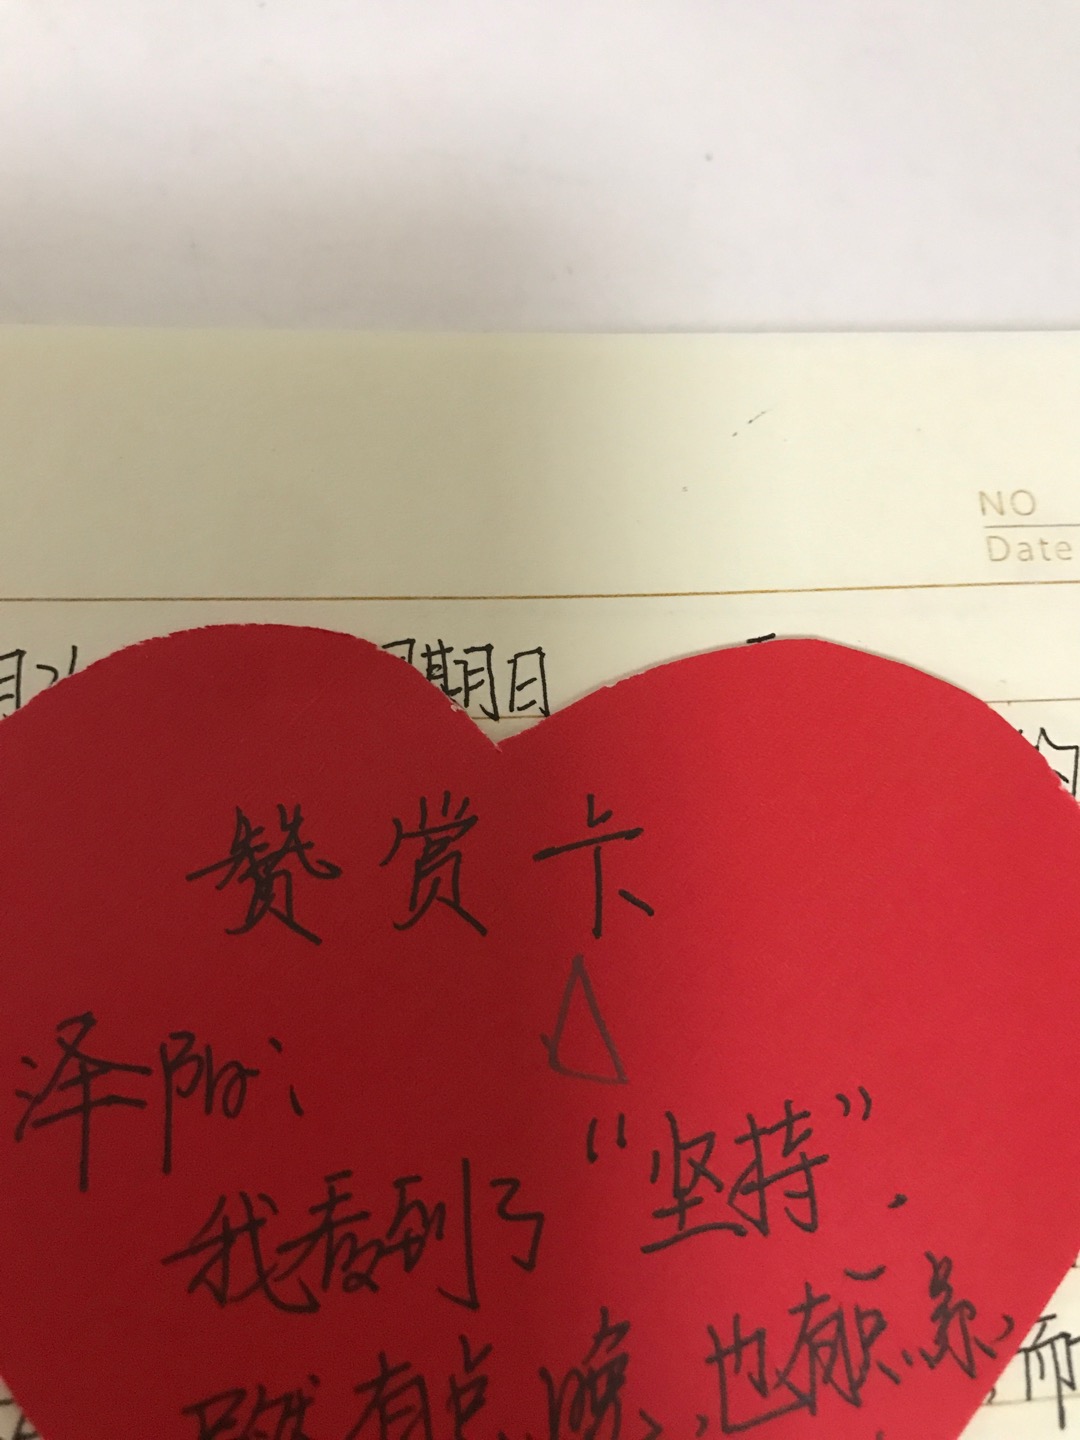 NO
Date
期日
赞赏卡
泽阳：
我看到了“坚持”.
虽然有点晚、也有点累、
而